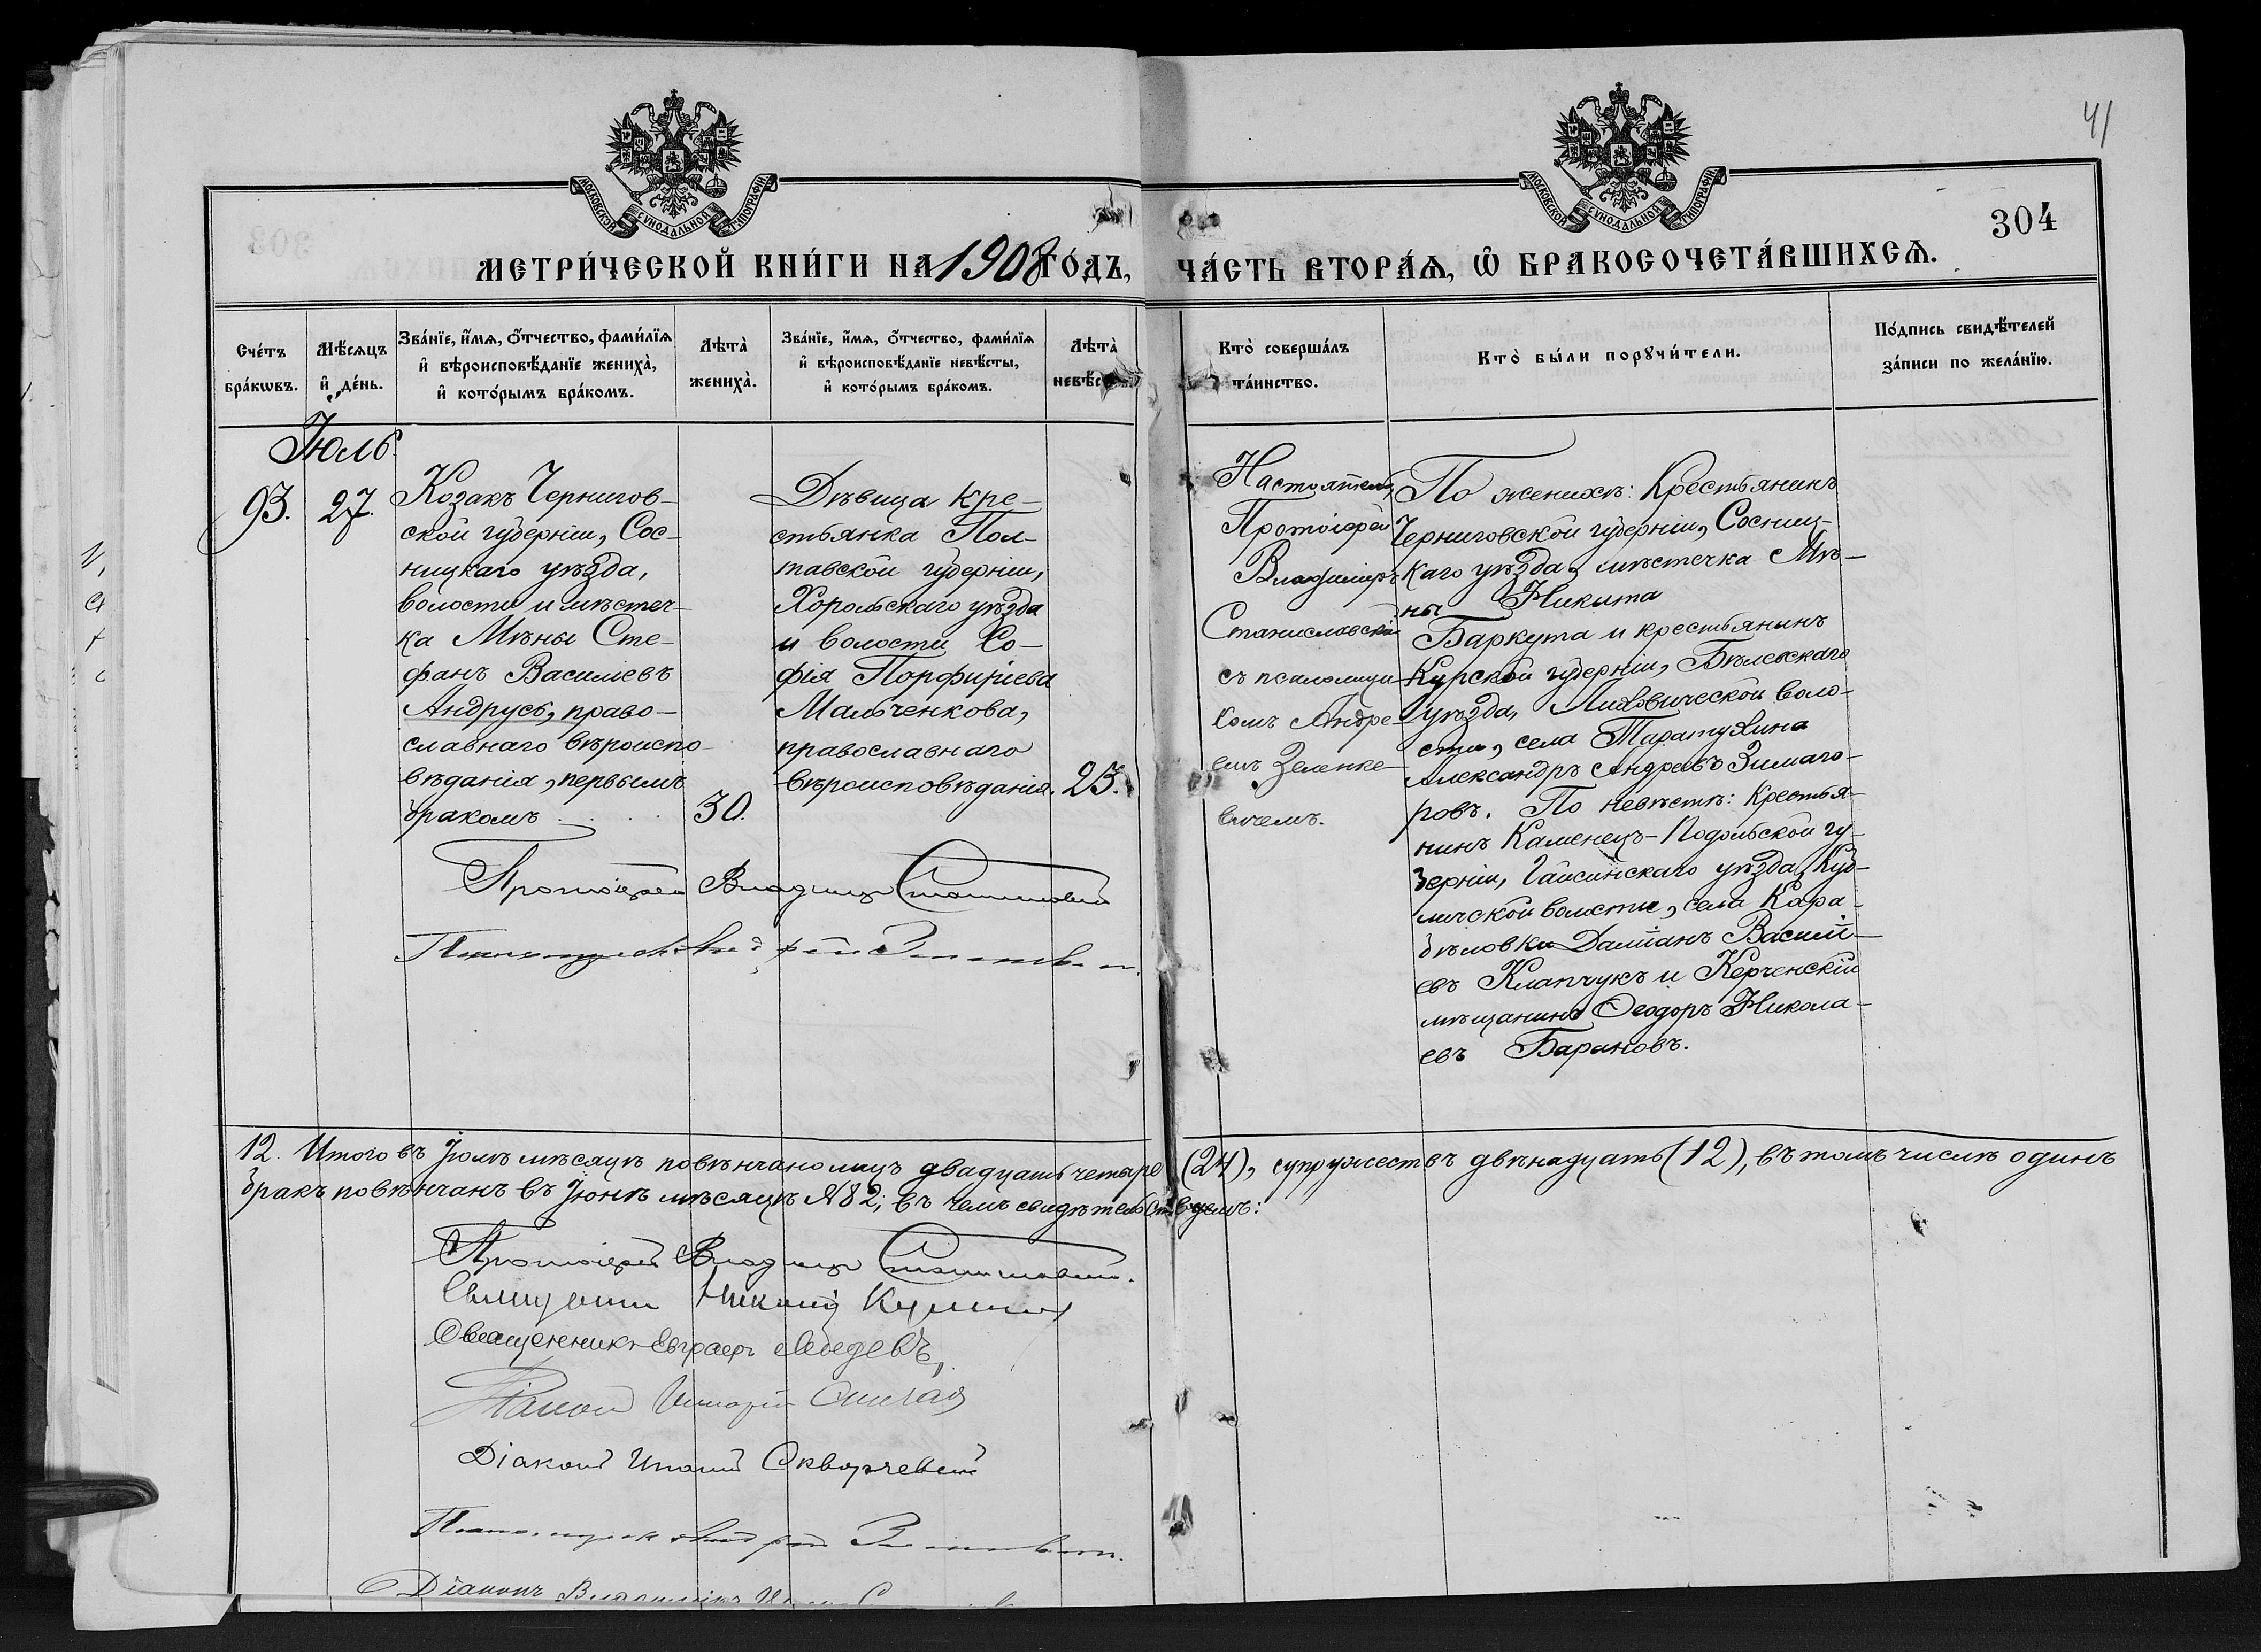 41
304
МОСКОВСКОЙ СѴНОДАЛЬНОЙ ТИПОГРАФІИ
МОСКОВСКОЙ СѴНОДАЛЬНОЙ ТИПОГРАФІИ
МЕТРИ́ЧЕСКОЙ КНИ́ГИ НА 1908 ГО́ДЪ,
ЧА́СТЬ ВТОРА́Ѧ, Ѽ БРАКОСОЧЕТА́ВШИХСѦ.
Сче́тъ
бра́кѡвъ.
Мѣ́сяцъ
и҆ де́нь.
Зва́нїе, и҆́мѧ, ѻ҆́тчество, фами́лїѧ
и҆ вѣроисповѣ́данїе жениха̀,
и҆ кото́рымъ бра́комъ.
Лѣта̀
жениха̀.
Зва́нїе, и҆́мѧ, ѻ҆́тчество, фами́лїѧ
и҆ вѣроисповѣ́данїе невѣ́сты,
и҆ кото́рымъ бра́комъ.
Лѣта̀
Кто̀ соверша́лъ
та́инство.
Кто̀ бы́ли порꙋчи́тели.
По́дпись свидѣ́телей
за́писи по жела́нїю.
Іюль.
93.
27.
Козакъ Чернигов-
ской губерніи, Сос-
ницкаго уѣзда,
волости и мѣстеч-
ка Мѣны Сте-
фанъ Василіевъ
Андрусь, право-
славнаго вѣроиспо-
вѣданія, первымъ
бракомъ . . . .
30.
Дѣвица кре-
стьянка Пол-
тавской губерніи,
Хорольскаго уѣзда
и волости Со-
фія Порфиріева
Мальченкова,
православнаго
вѣроисповѣданія.
23.
Настоятель,
Протоіерей
Владиміръ
Станиславскій
съ псаломщи-
комъ Андре-
емъ Зеленке-
вичемъ.
По женихѣ: Крестьянинъ
Черниговской губерніи, Сосниц-
каго уѣзда, мѣстечка Мѣ-
ны Никита
Баркута и крестьянинъ
Курской губерніи, Бѣлевскаго
уѣзда, Лиховической воло-
сти, села Таратухина
Александръ Андреевъ Зимаго-
ровъ. По невѣстѣ: Крестья-
нинъ Каменецъ-Подольской гу-
берніи, Гайсинскаго уѣзда, Куб-
личской волости, села Кара-
бѣловки Даміанъ Василі-
евъ Клапчукъ и Керченскій
мѣщанинъ Ѳеодоръ Никола-
евъ Бариновъ.
Протоіерей Владиміръ Станиславскій
Псаломщикъ Андрей Зеленкевичъ.
12. Итого въ Іюлѣ мѣсяцѣ повѣнчано лицъ двадцать четыре (24), супружествъ двѣнадцать (12), въ томъ числѣ одинъ
бракъ повѣнчанъ въ Іюнѣ мѣсяцѣ № 82; въ чемъ свидѣтельствуемъ:
Протоіерей Владиміръ Станиславскій.
Священникъ Николай
Священникъ Евграфъ Лебедевъ,
Діаконъ
Діаконъ Игнатій Скворчевскій
Псаломщикъ Андрей Зеленкевичъ.
Діаконъ